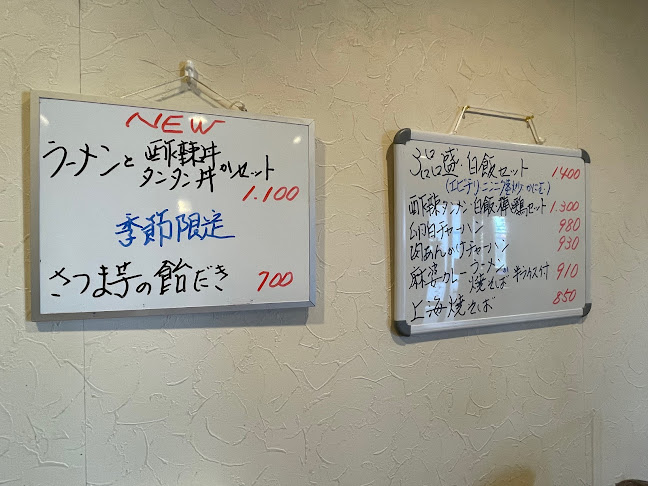 NEW
ラーメンと 酢辣丼
タンタン丼 かセット
1.100
季節限定
さつま芋の飴だき 700
3品盛 白飯セット 1400
(エビチリ ニンニク かにたま)
酢辣タンメン 白飯 セット 1.300
チャーハン 980
肉あんかけチャーハン 930
麻婆カレーラーメン
焼そば 半ライス付 910
上海焼そば 850